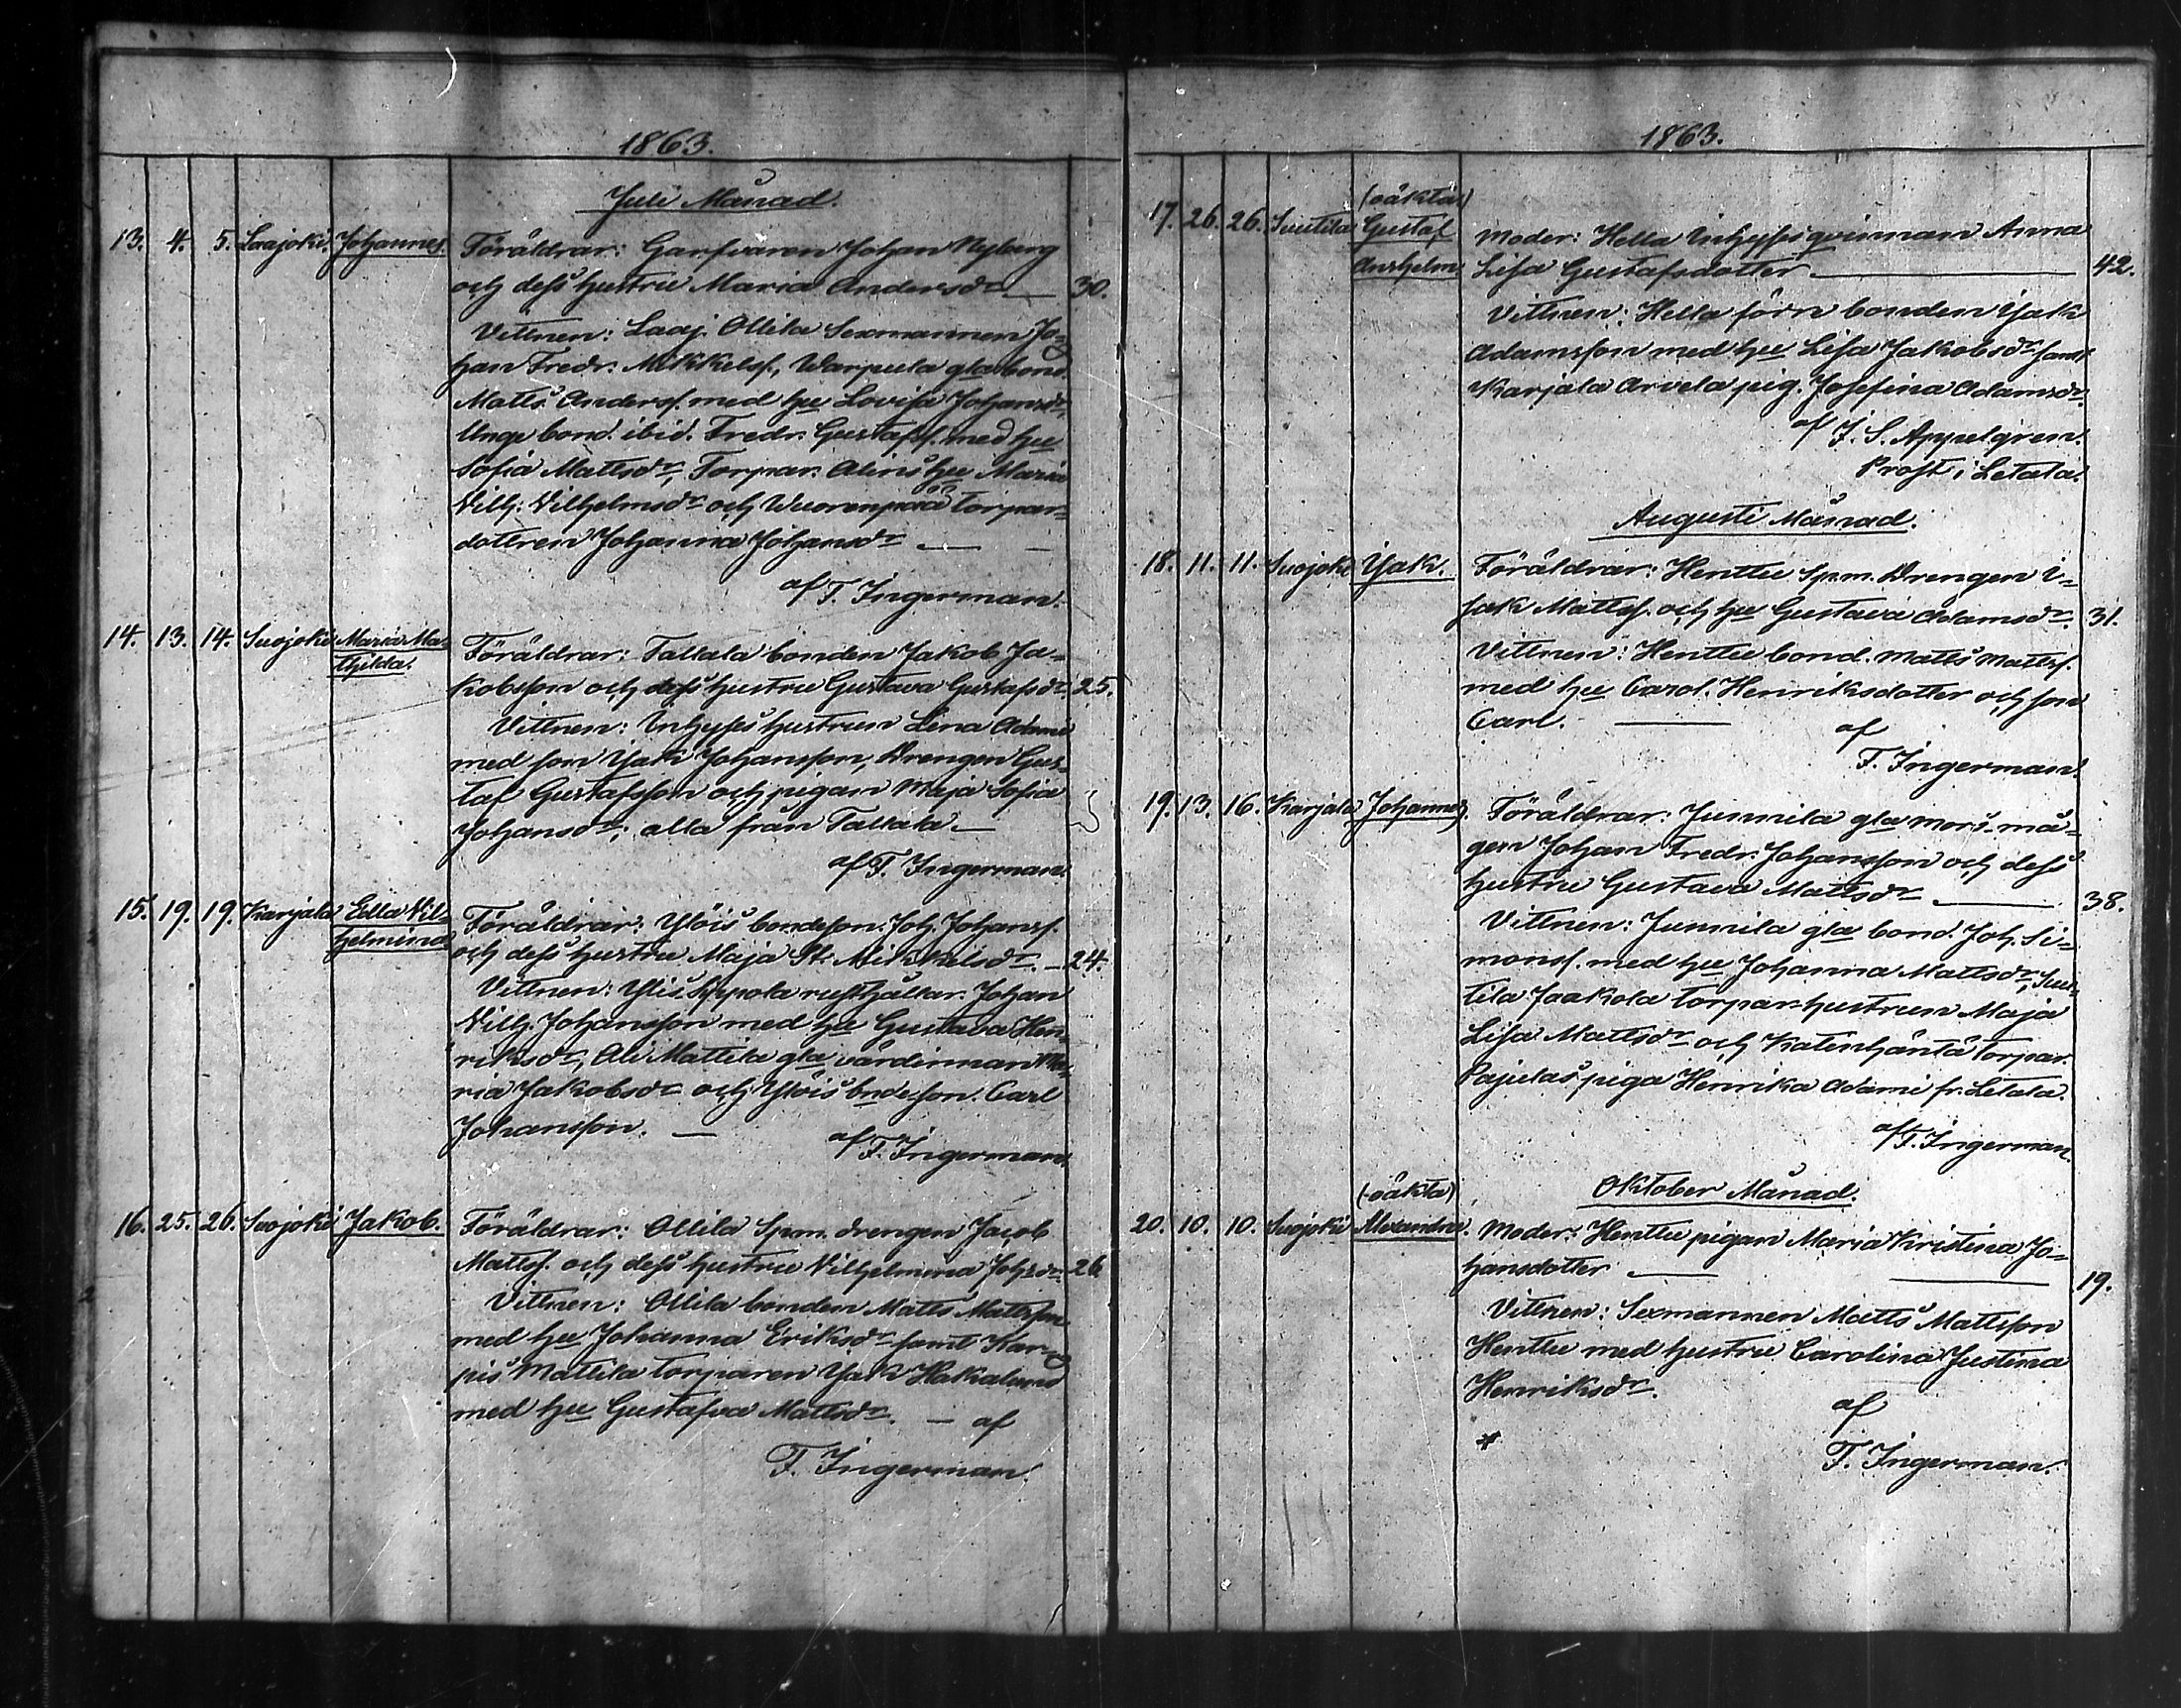 1863.
Juli Månad.
13. 4. 5. Laajoki. Johannes. Föräldrar: Garfvaren Johan Nyberg
och dess hustru Maria Andersdr — 30.
Vittnen: Laaj. Ollila Sexmannen Jo-
han Fredr. Mikkelss., Warpula gla bond.
Matts Anderss. med hu Lovisa Johansdr,
Unge bond. ibid. Fredr. Gustafss. med hu
Sofia Mattsdr, Torpar. Alins hu Maria
Vilh: Vilhelmsdr och Wuorenpää torpar-
dottren Johanna Johansdr —
af F. Ingerman.
14. 13. 14. Suojoki Maria Ma-
thilda. Föräldrar: Tallala bonden Jakob Ja-
kobsson och dess hustru Gustava Gustafsdr 25.
Vittnen: Inhyses hustrun Lena Adami
med son Isak Johansson, Drengen Gus-
taf Gustafsson och pigan Maja Sofia
Johansdr; alla från Tallala —
af F. Ingerman.
15. 19. 19. Karjala Edla Vil-
helmina Föräldrar: Ylöis bondeson. Joh. Johanss.
och dess hustru Maja St. Mikkelsdr. — 24.
Vittnen: Ylis. Seppola rusthållar. Johan
Vilh. Johansson med hu Gustava Hen-
riksdr, Ali Mattila gla värdinnan Ma-
ria Jakobsdr och Ylöis bondeson. Carl
Johansson. —
af F. Ingerman.
16. 25. 26. Suojoki Jakob. Föräldrar: Ollila Spm. drengen Jacob
Mattss. och dess hustru Vilhelmina Johsdr 26.
Vittnen: Ollila bonden Matts Mattsson
med hu Johanna Eriksdr samt Kar-
pis Mattila torparen Isak Hakalund
med hu Gustafva Mattsdr. — af
F. Ingerman.
1863.
17. 26. 26. Suutila (oäkta)
Gustaf
Anshelm. Moder: Hella Inhyses qvinnan Anna
Lisa Gustafsdotter — 42.
Vittnen: Hella förn bonden Isak
Adamsson med hu Lisa Jakobsdr samt
Karjala Arvela pig. Josefina Adamsdr.
af J. S. Appelgren.
Prost i Letala.
Augusti Månad.
18. 11. 11. Suojoki Isak. Föräldrar: Henttu Spm. Drengen I-
sak Mattss. och hu Gustava Adamsdr. 31.
Vittnen: Henttu bond. Matts Mattss.
med hu Carol. Henriksdotter och son
Carl. —
af
F. Ingerman.
19. 13. 16. Karjala Johannes. Föräldrar: Junnila gla mors må-
gen Johan Fredr. Johansson och dess
hustru Gustava Mattsdr — 38.
Vittnen: Junnila gla bond. Joh. Si-
monss. med hu Johanna Mattsdr, Suu-
tila Jaakola torparhustrun Maja
Lisa Mattsdr och Katinhäntä torpar.
Pajulas piga Henrika Adami fr. Letala.
af F. Ingerman.
Oktober Månad.
20. 10. 10. Suojoki (oäkta)
Alexandra. Moder: Henttu pigan Maria Kristina Jo-
hansdotter — 19.
Vittnen: Sexmannen Matts Mattsson
Henttu med hustru Carolina Justina
Henriksdr.
af
F. Ingerman.